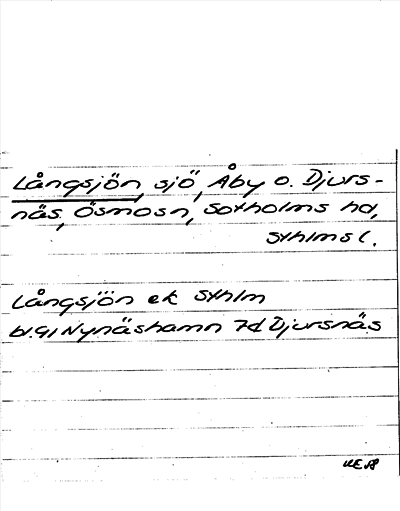 Långsjön, sjö, Åby o. Djurs-
näs, Ösmosn, Sotholms hd,
Sthlms l.
Långsjön ek Sthlm
bl. 91 Nynäshamn 7d Djursnäs